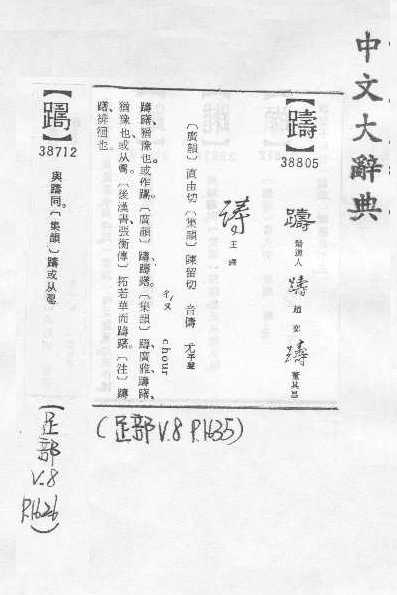 中文大辭典
【躊】
38805
躊
躊 趙
躊 董其昌
王鐸
〔廣韻〕直由切〔集韻〕陳留切 音儔 尤平聲
ㄔㄡˊ chour
躊躇、猶豫也、或作。〔廣韻〕躊、躊躇。〔集韻〕躊、廣雅、躊躇、
猶豫也、或从。〔後漢書張衡傳〕拓若華而躊躇。〔注〕躊
躇、徘徊也。
(足部 V.8 P.1635)
38712
與躊同。〔集韻〕躊或从
(足部 V.8 P.1626)